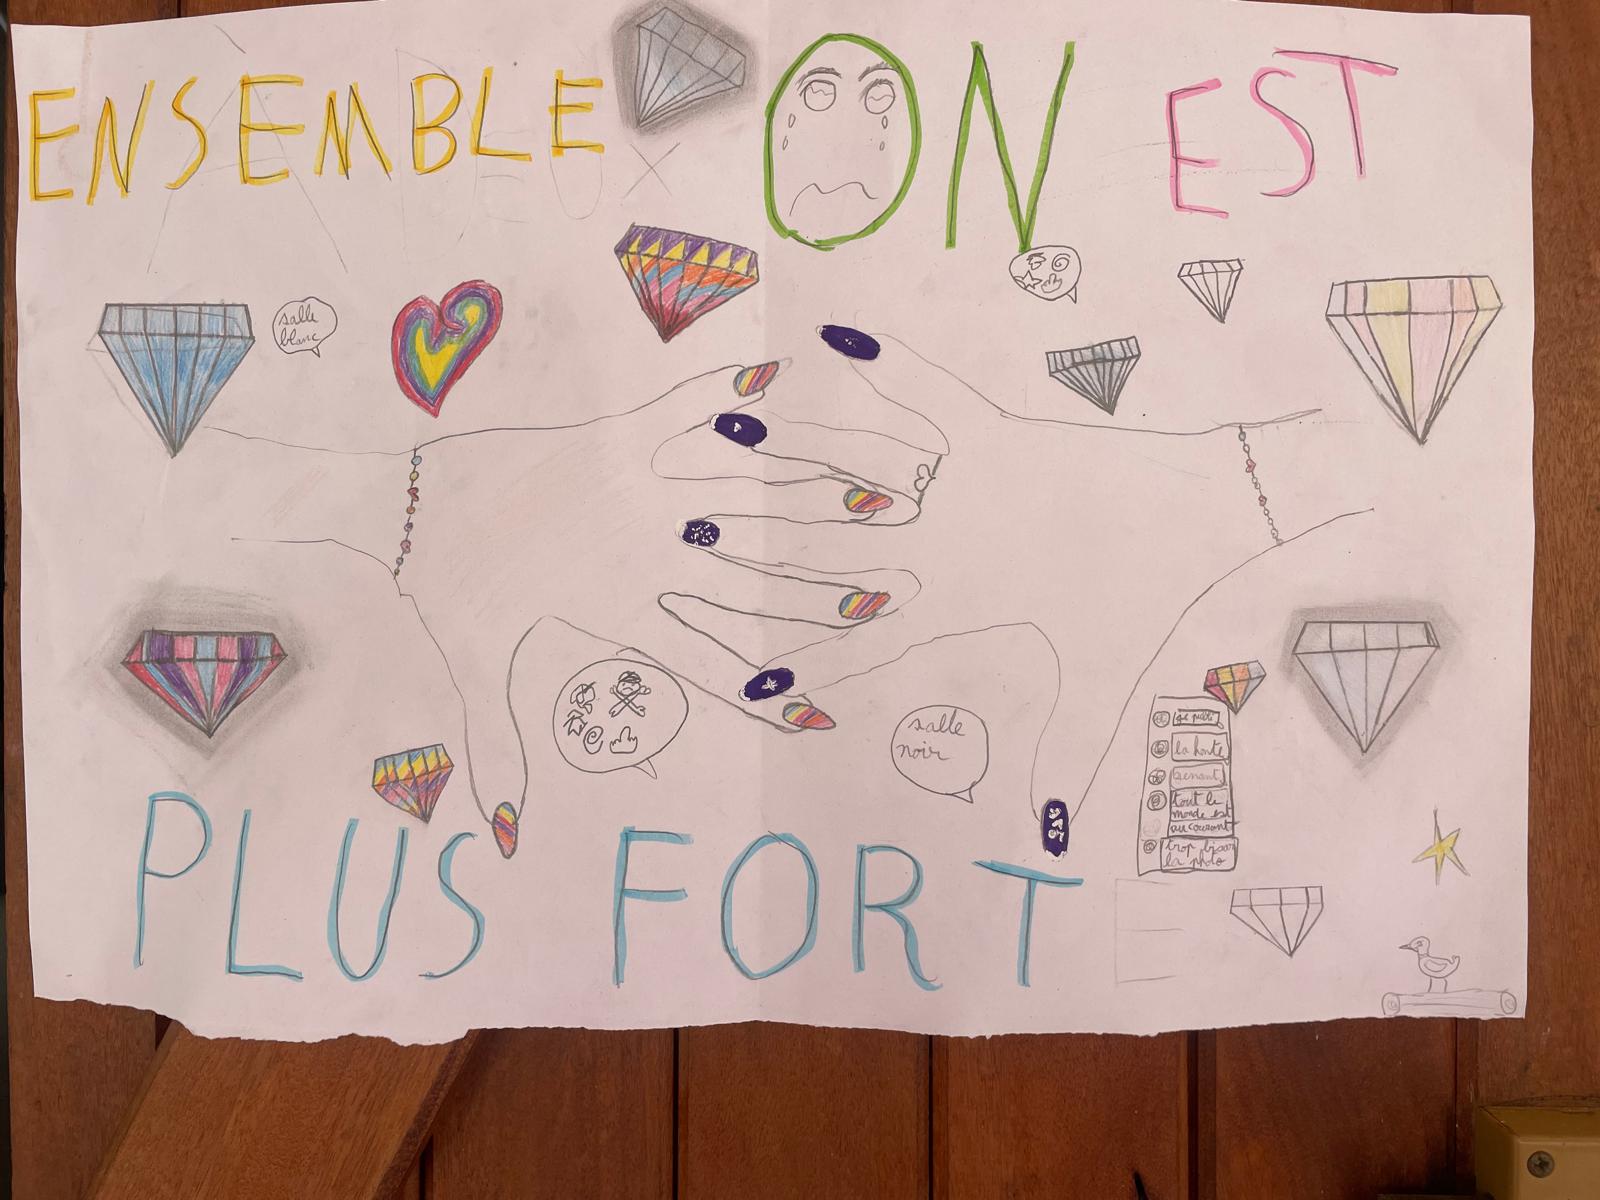 ENSEMBLE ON EST
salle
blanc
salle
noir
la honte
tout le
monde est
au courant
trop
la photo
PLUS FORT